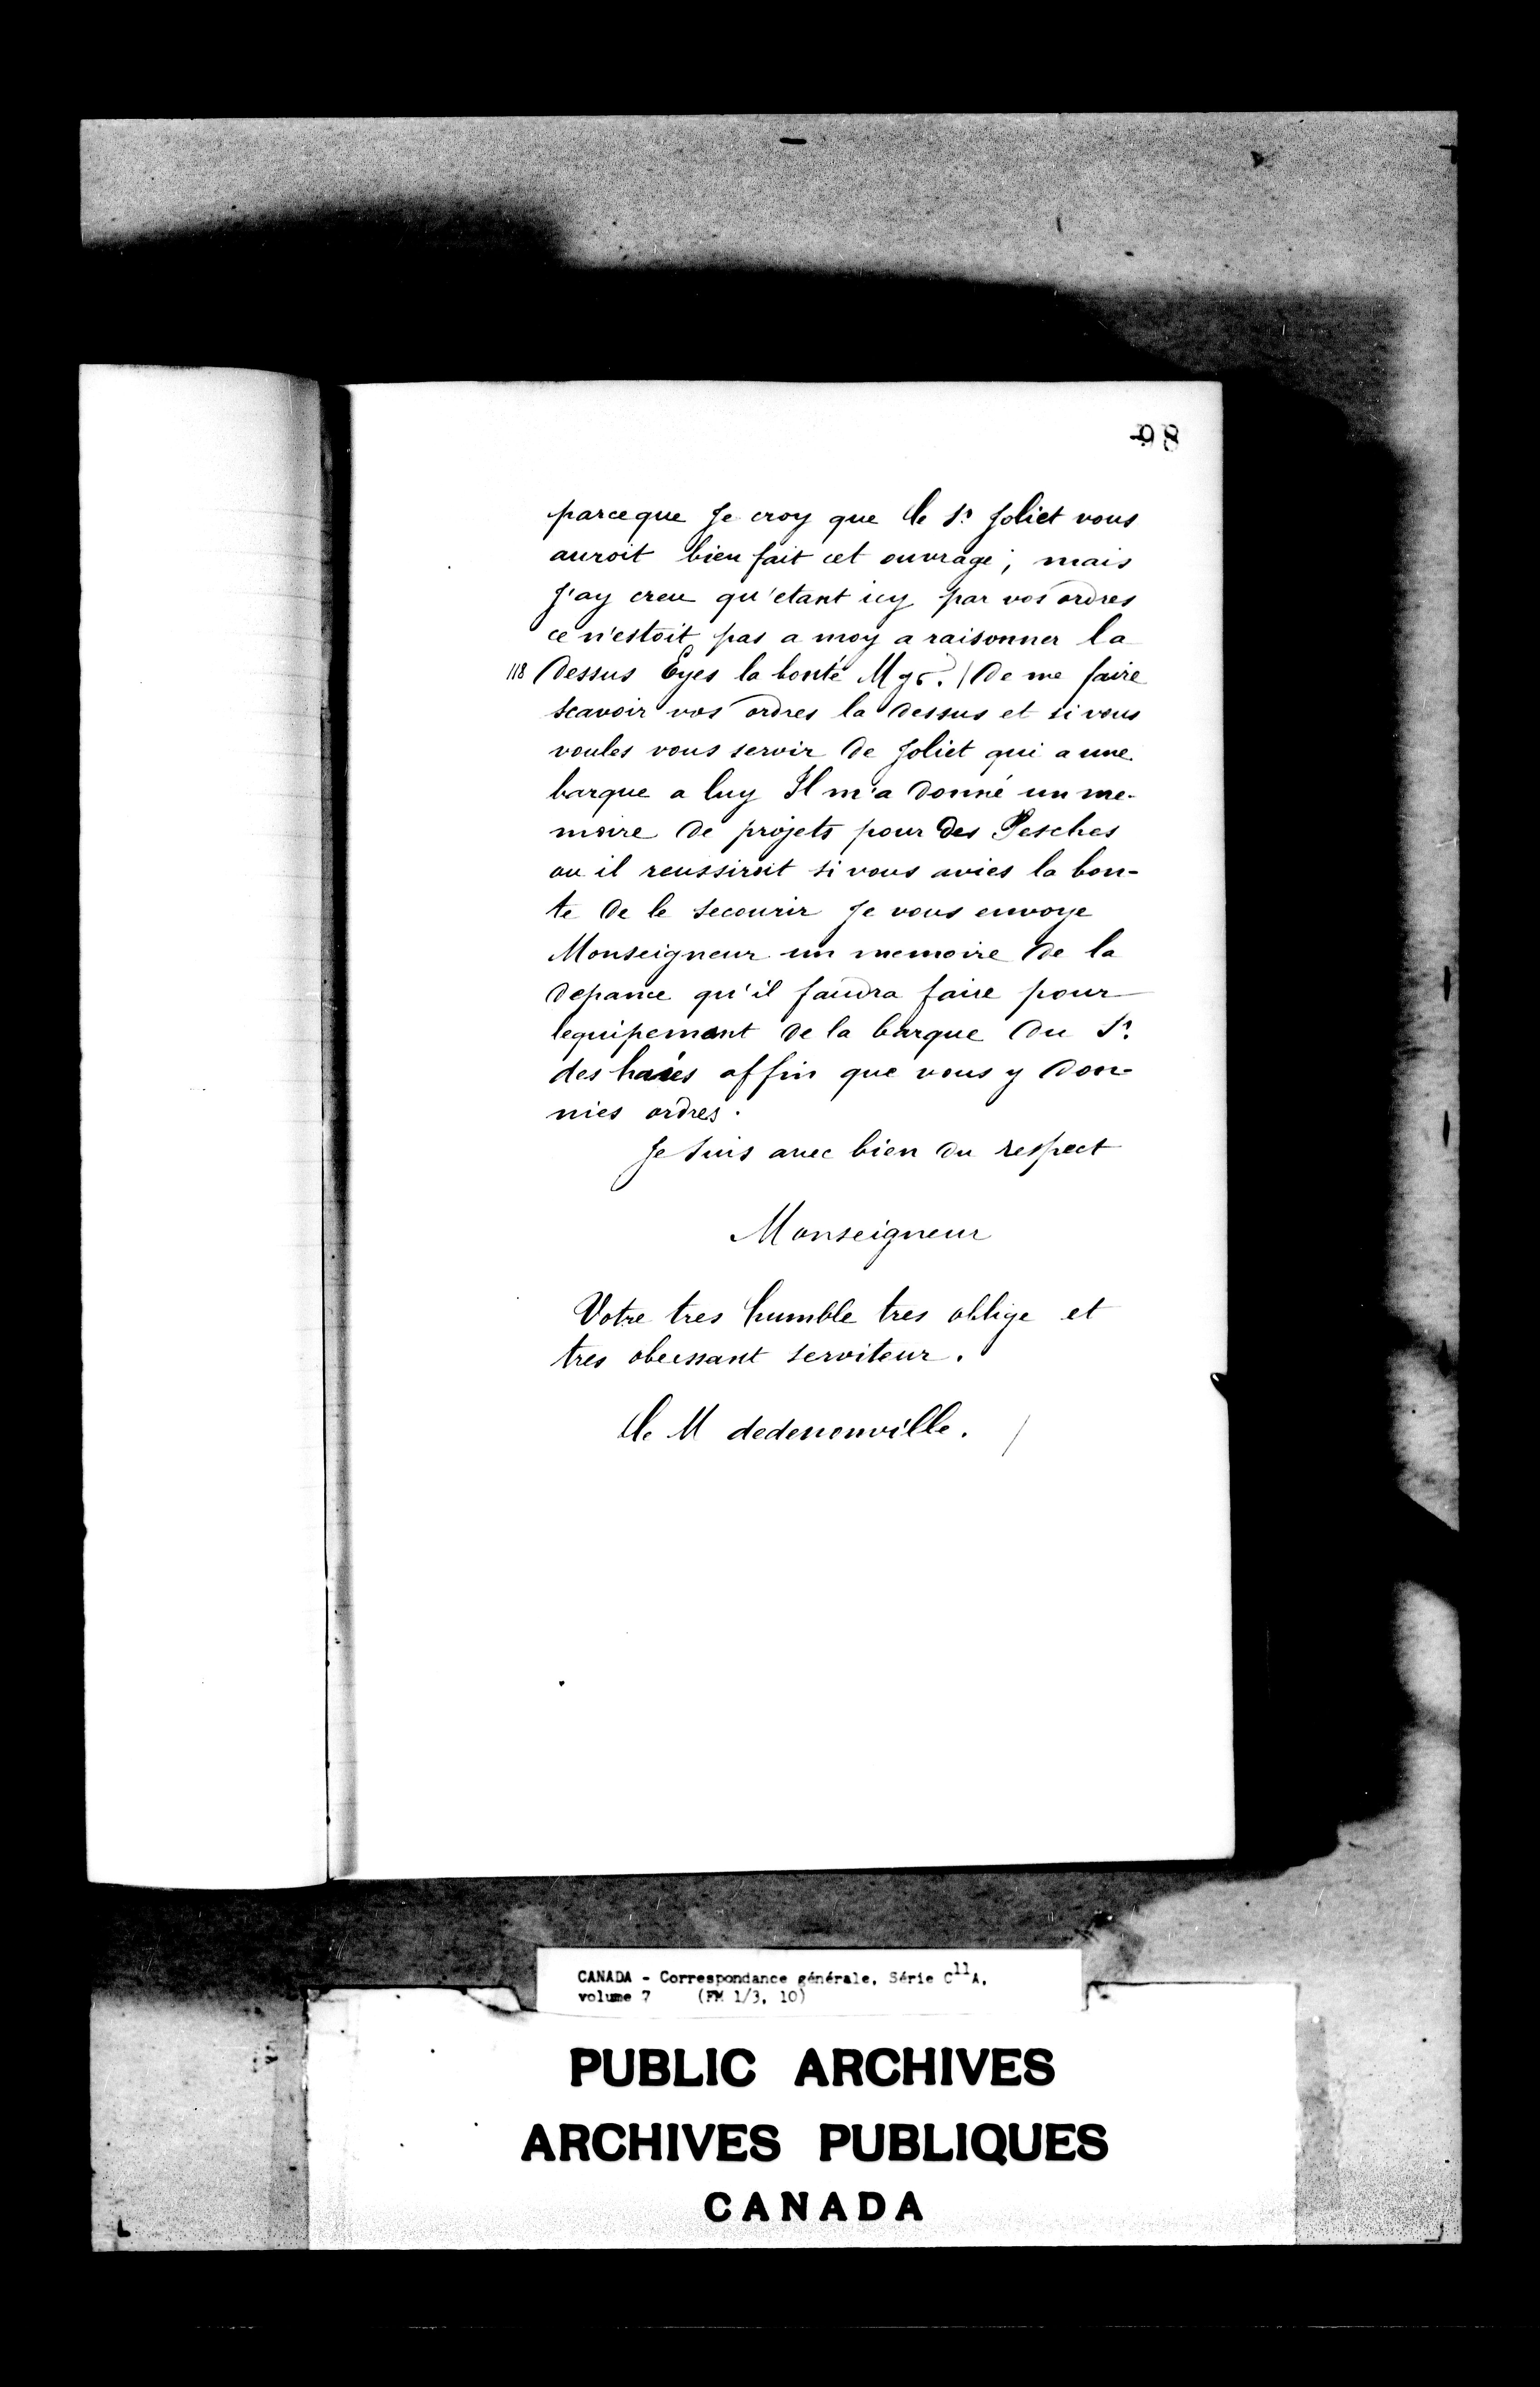 98
parceque Je croy que le Sr. Joliet vous
auroit bien fait cet ouvrage; mais
J'ay creu qu'etant icy par vos ordres
ce n'estoit pas a moy a raisonner la
118 dessus Eyes la bonté Mgr. / de me faire
scavoir vos ordres la dessus et si vous
voules vous servir de Joliet qui a une
barque a luy Il m'a donné un me-
moire de projets pour des Pesches
ou il reussiroit si vous avies la bon-
te de le secourir Je vous envoye
Monseigneur un memoire de la
depance qu'il faudra faire pour
lequipemant de la barque du Sr.
des haies affin que vous y don-
nies ordres.
Je suis avec bien du respect
Monseigneur
Votre tres humble tres oblige et
tres obeissant serviteur.
Le M dedenonville. /
CANADA - Correspondance générale, Série C11A,
volume 7 (FM 1/3, 10)
PUBLIC ARCHIVES
ARCHIVES PUBLIQUES
CANADA